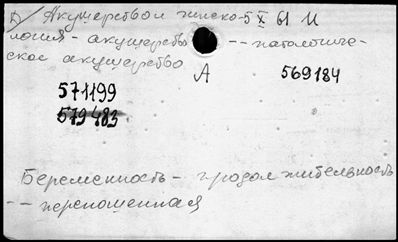 Д) Акушерство и гинеко- 5 X 61 И
логия - акушерство -- патологиче-
ское акушерство
А 569184
571199
579483
Беременность - продолжительность
-- переношенная